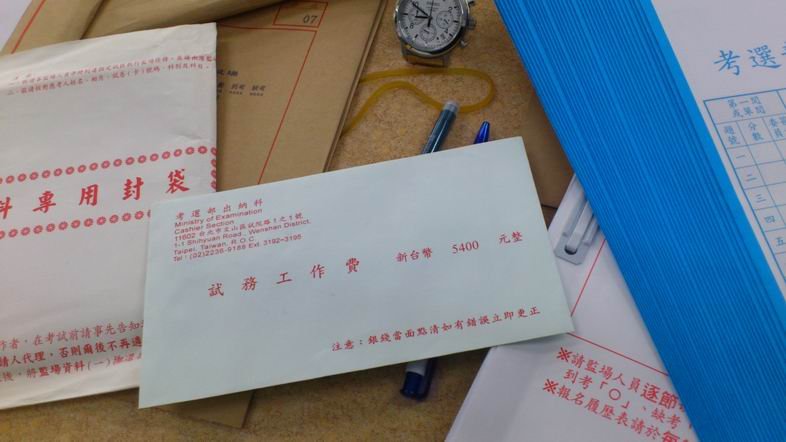 07
到考 缺考
料專用封袋
考選部出納科
Ministry of Examination
Cashier Section
11602 台北市文山區試院路1之1號
1-1 Shihyuan Road., Wenshan District,
Taipei, Taiwan, R.O.C.
Tel : (02)2236-9188 Ext. 3192~3195
試務工作費 新台幣 5400 元整
注意：銀錢當面點清如有錯誤立即更正
作者，在考試前請事先告知
請人代理，否則爾後不再
後，將監場資料(一)
考選
第一閱
或單閱
題號
分數
委員
一
二
三
四
五
※請監場人員逐節
到考「○」、缺考「
※報名履歷表請於每